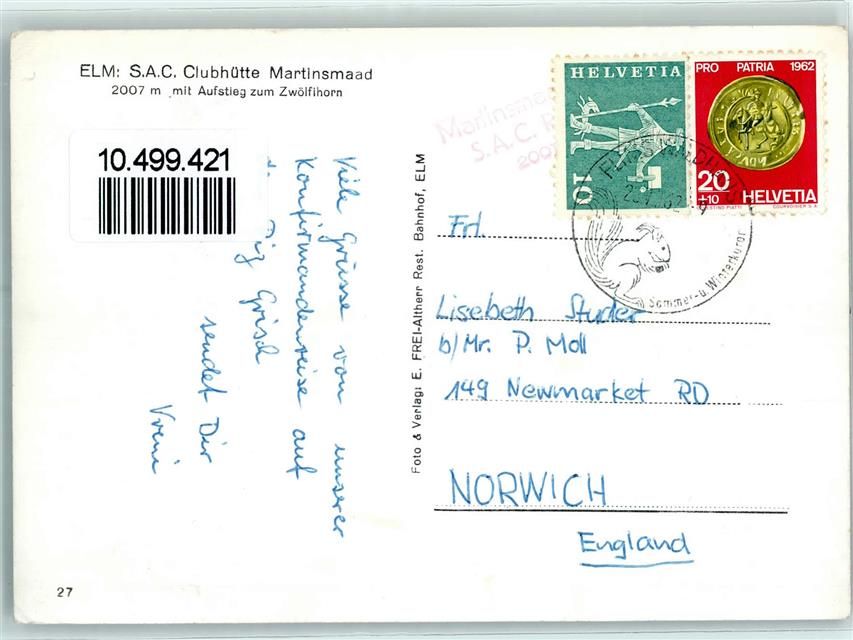 ELM: S.A.C. Clubhütte Martinsmaad
2007 m mit Aufstieg zum Zwölfihorn
10.499.421
Viele Grüsse von unserer
Konfirmandenreise auf
Grisch
sendet Dir
Vreni
27
Foto & Verlag: E. FREI-Altherr Rest. Bahnhof, ELM
Martinsma
S.A.C.
2007
HELVETIA
10
PRO PATRIA 1962
20
+10
HELVETIA
COURVOISIER S.A.
FLIMS WALDHAUS
Sommer- u. Winterkuror
Frl.
Lisebeth Studer
b/Mr. P. Moll
149 Newmarket RD
NORWICH
England